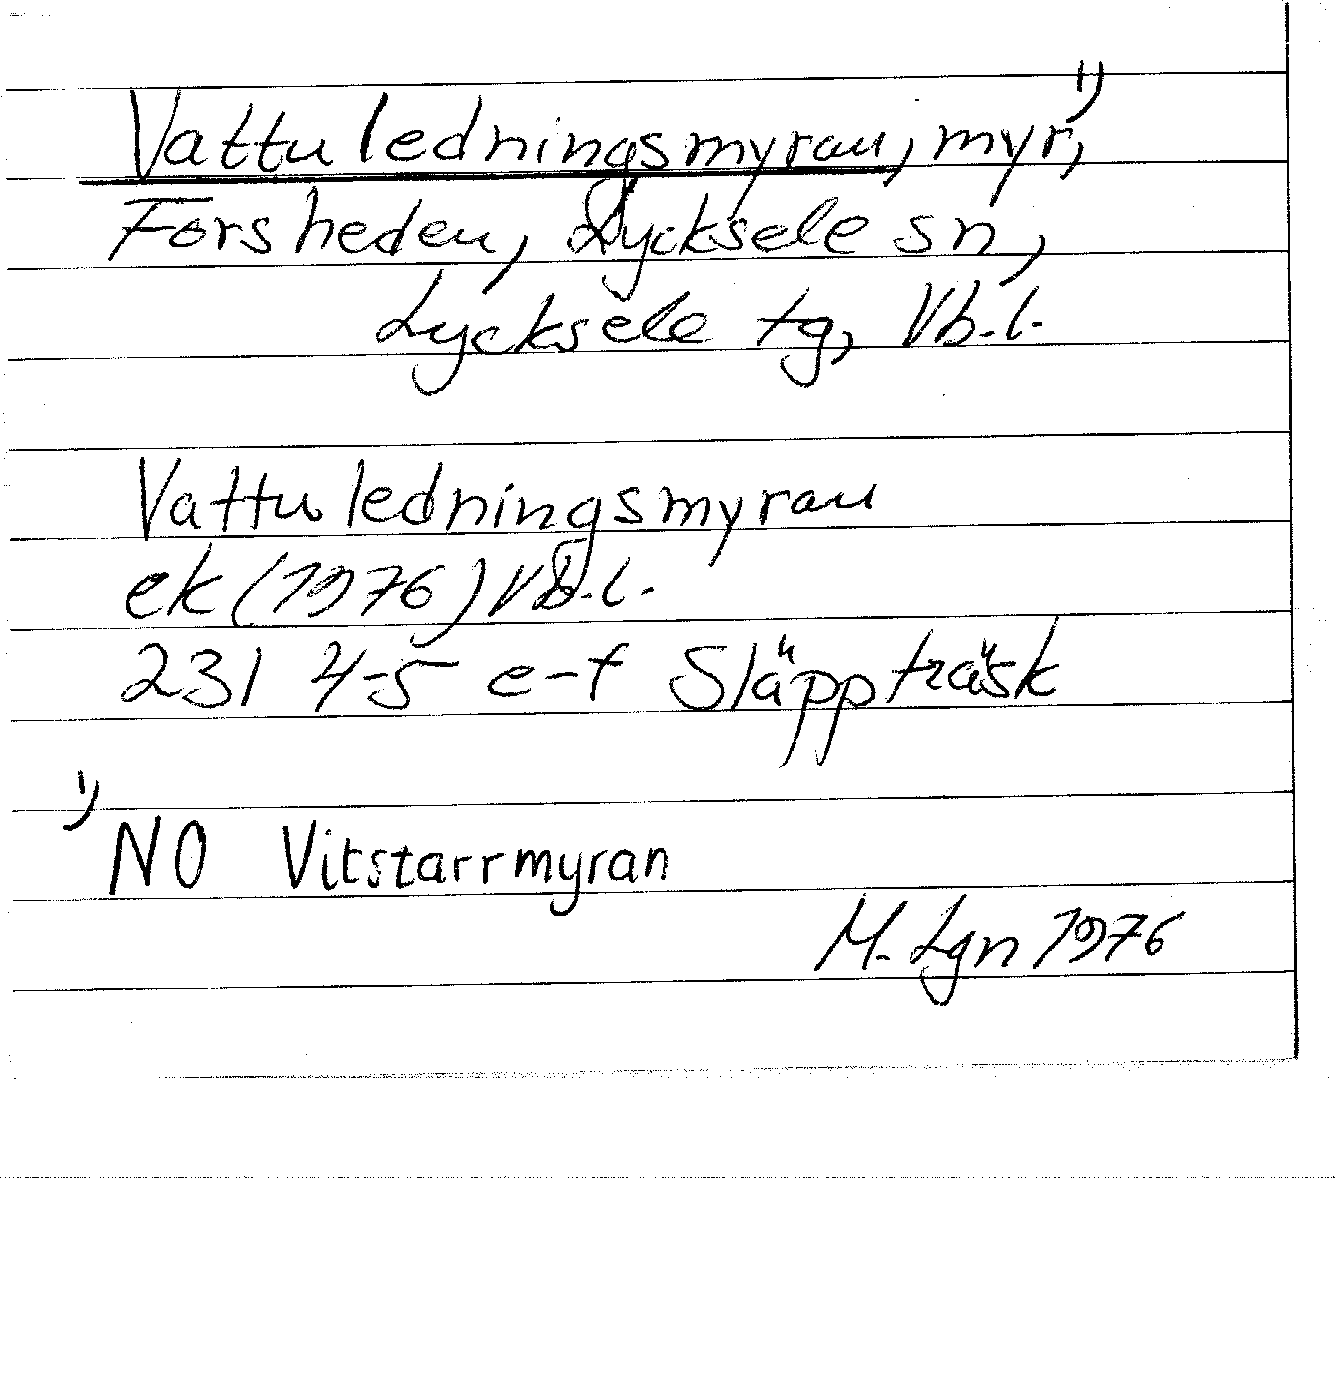 Vattuledningsmyran, myr, 1)
Forsheden, Lycksele sn,
Lycksele tg, Vb.l.
Vattuledningsmyran
ek (1976) Vb.l.
231 4-5 e-f Släppträsk
1)
NO Vitstarrmyran
M. Lgn 1976